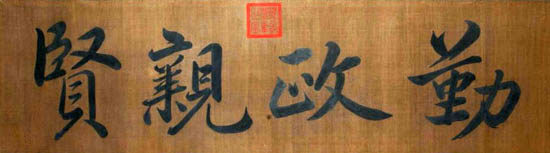 勤政親賢